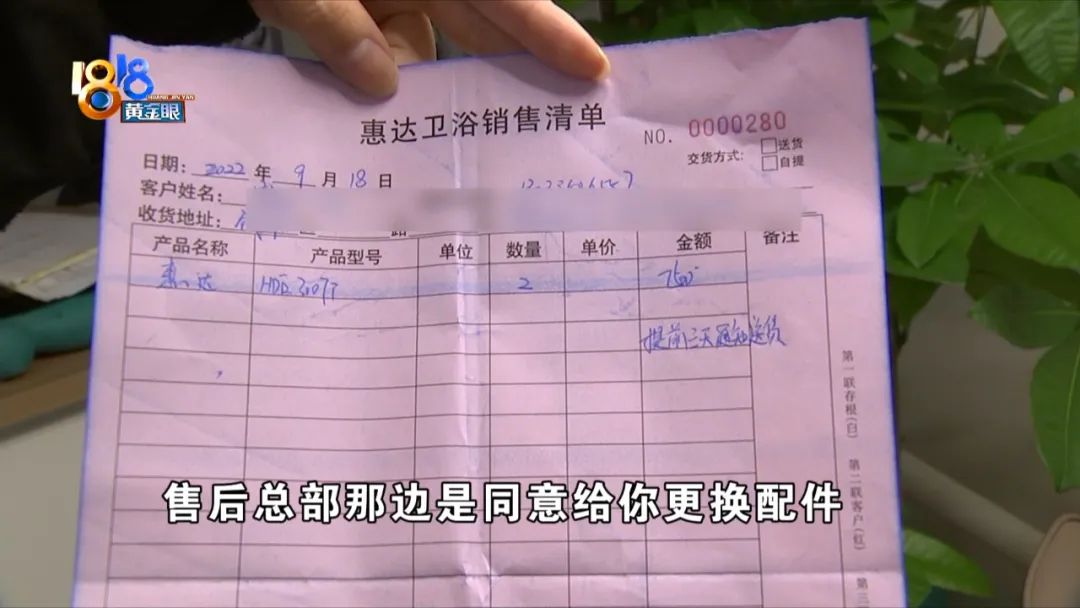 1818
HUANG JIN YAN
黄金眼
惠达卫浴销售清单
NO. 0000280
交货方式: 送货
自提
日期: 2022 年 9 月 18 日
客户姓名:
收货地址:
产品名称 产品型号 单位 数量 单价 金额 备注
惠达 2
提前三天通知送货
第一联存根(白)
第二联客户(红)
第三
售后总部那边是同意给你更换配件